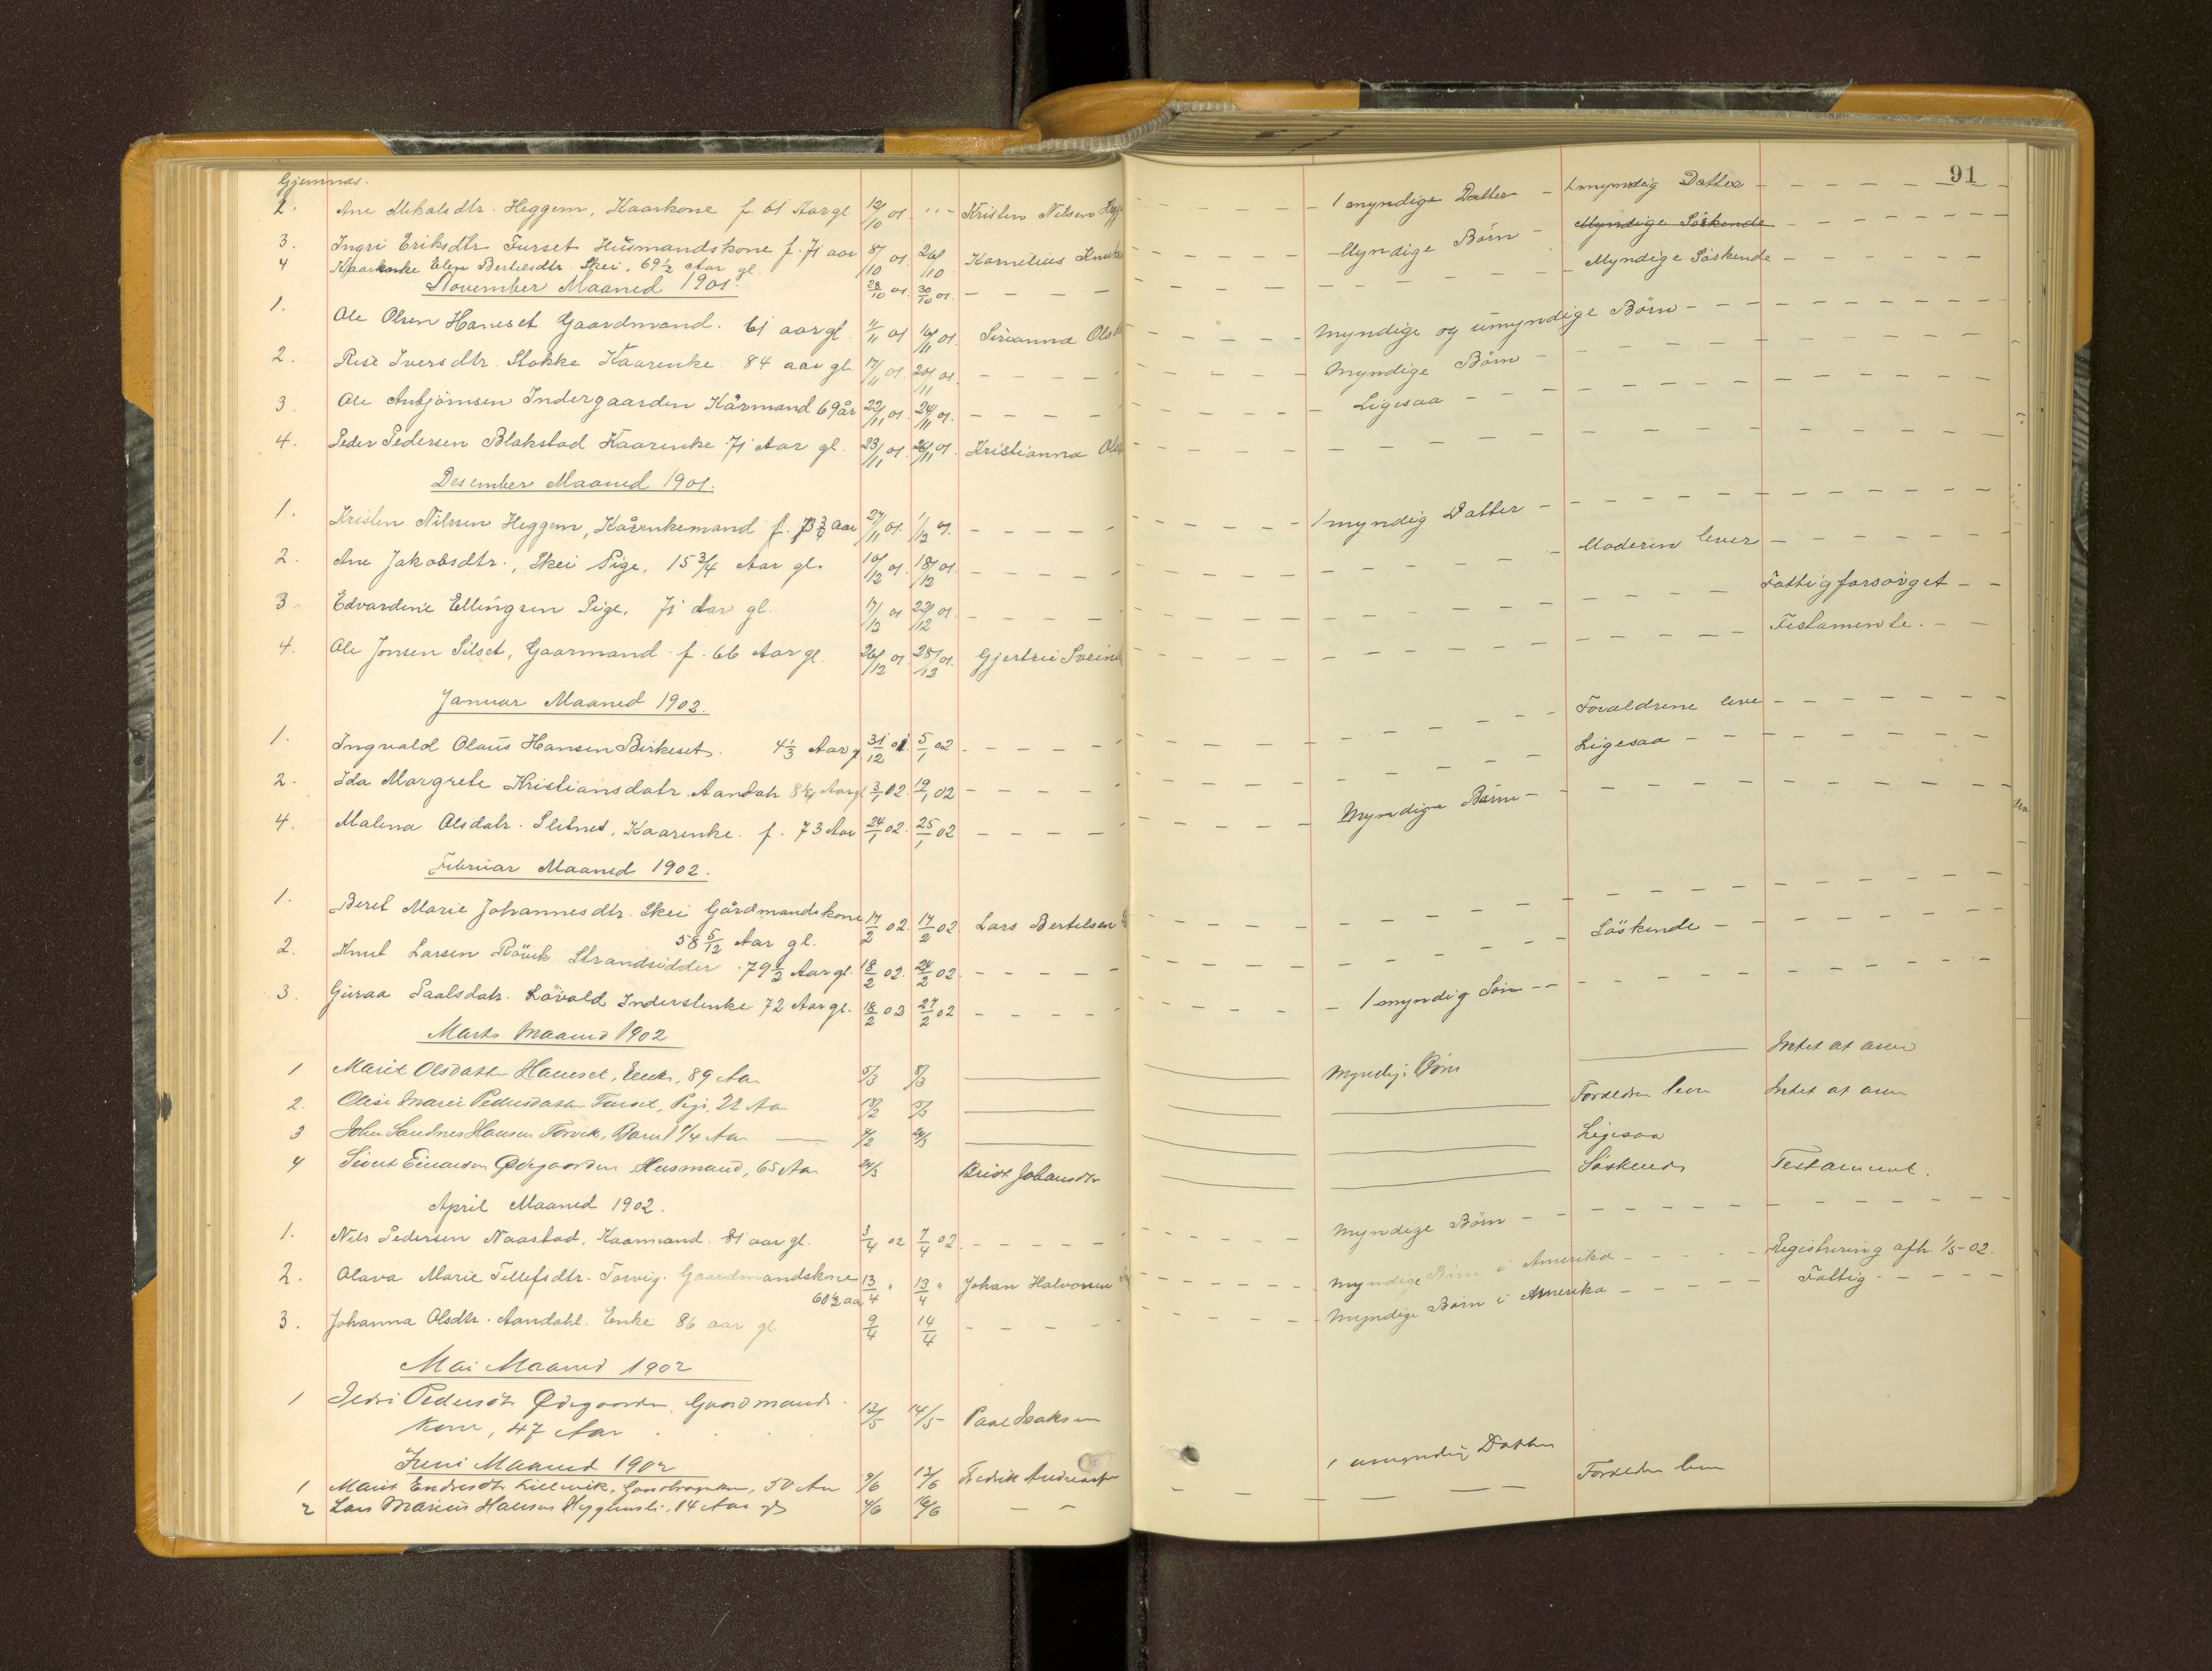 91
Gjemnas.
2. Ane Mikalsdtr. Heggem, Kaarkone f. 61 Aar gl 12/10 01 " - Kristen Nilsen Hegg - - - - 1 myndige Datter - 1 myndig Datter - - - - - -
3. Ingri Eriksdtr Furset Husmandskone f. 71 aar 8/10 01 26/10 Kornelius Knuts Myndige Børn - Myndige Söskende - - - - -
4 Kaarenke Elen Bertelsdtr Skei, 69 1/2 Aar gl. 28/10 01. 30/10 01. - - - - Myndige Söskende - - - - -
November Maaned 1901.
1. Ole Olsen Hanset Gaardmand. 61 aar gl. 11/11 01 16/11 01. Sirianna Ols - - - - Myndige og umyndige Börn - - - - - -
2. Iversdtr. Stokke Kaarenke 84 aar gl. 17/11 01. 20/11 01. - - - - Myndige Börn - - - -
3. Ole Anbjörnsen Indergaarden Kårmand 69 år 22/11 01. 24/11 01. - - - - Ligesaa - - - -
4. Peder Pedersen Blakstad Kaarenke 71 Aar gl. 23/11 01. 26/11 01. Kristianna Ols - - - -
Desember Maaned 1901.
1. Kristen Nilssen Heggem, Kåremkemand f. 73 3/4 aar 27/11 01. 1/12 01. - - - - 1 myndig Datter - - - -
2. Ane Jakobsdtr., Skei Pige, 15 3/4 Aar gl. 10/12 01. 18/12 01 - - - - Moderen lever - - - -
3. Edvardine Ellingsen Pige, 71 Aar gl. 17/12 01 22/12 01. - - - - Fattigforsörget - -
4. Ole Jonsen Silset, Gaarmand f. 66 Aar gl. 26/12 01 28/12 01. Gjertrü Svein - - - - Testamente. - -
Januar Maaned 1902.
1. Ingvald Olaus Hansen Birkeset. 4 1/3 Aar g 31/12 01 5/1 02 - - - - Forældrene leve - - - -
2. Ida Margrete Kristiansdatr. Aandah 8 1/4 Aar gl 3/1 02. 19/1 02 - - - - Ligesaa - - - -
4. Malena Olsdatr. Slitnes, Kaarenke. f. 73 Aar 24/1 02. 25/1 02 - - - - Myndige Börn -
Februar Maaned 1902.
1. Beret Marie Johannesdtr. Skei Gårdmandskone 14/2 02. 17/2 02 Lars Bertelsen - - - -
58 5/12 Aar gl.
2. Knut Larsen Rövik Strandsidder. 79 1/2 Aar gl. 18/2 02. 24/2 02. - - - - Söskende - - - -
3. Guraa Paalsdatr. Lövold Inderstenke 72 Aar gl. 18/2 02 27/2 02 - - - - 1 myndig Sön - - - -
Marts Maaned 1902
1 Marit Olsdatter Hanset, Enke, 89 Aar 5/3 8/3 Myndige Børn Intet at arve
2. Olise Marie Pedersdatter Furset, Pige, 22 Aar 18/2 5/3 Forældre leve Intet at arve
3 John Sandnes Hansen Torvik, Barn 1 1/4 Aar 7/2 24/3 Ligesaa
4 Sivert Einarsen Ødegaarden Husmand, 65 Aar 24/3 Brit Johansdtr Söskende Testament.
April Maaned 1902.
1. Nils Pedersen Naastad, Kaarmand. 81 aar gl. 3/4 02 7/4 02. - - - - Myndige Börn - - - -
2. Olava Marie Tellefsdtr. Torvig. Gaardmandskone 13/4 " 13/4 " Johan Halvorsen - - - - Myndige Börn i Amerika - - - - Registrering afh. 1/5-02.
60 1/2 aar
3. Johanna Olsdtr. Aandahl. Enke 86 aar gl. 9/4 14/4 - - - - Myndige Börn i Amerika - - - - Fattig. - - - -
Mai Maaned 1902
1 Pedersdtr Ødegaarden, Gaardmands- 12/5 14/5 Paal Isaksen
kone, 47 Aar
Juni Maaned 1902
1 Marit Endresdtr 50 Aar 9/6 12/6 Fredrik 1 umyndig Datter
2 Lars Marius Hansen 14 Aar gl 4/6 16/6 - - Forældre leve